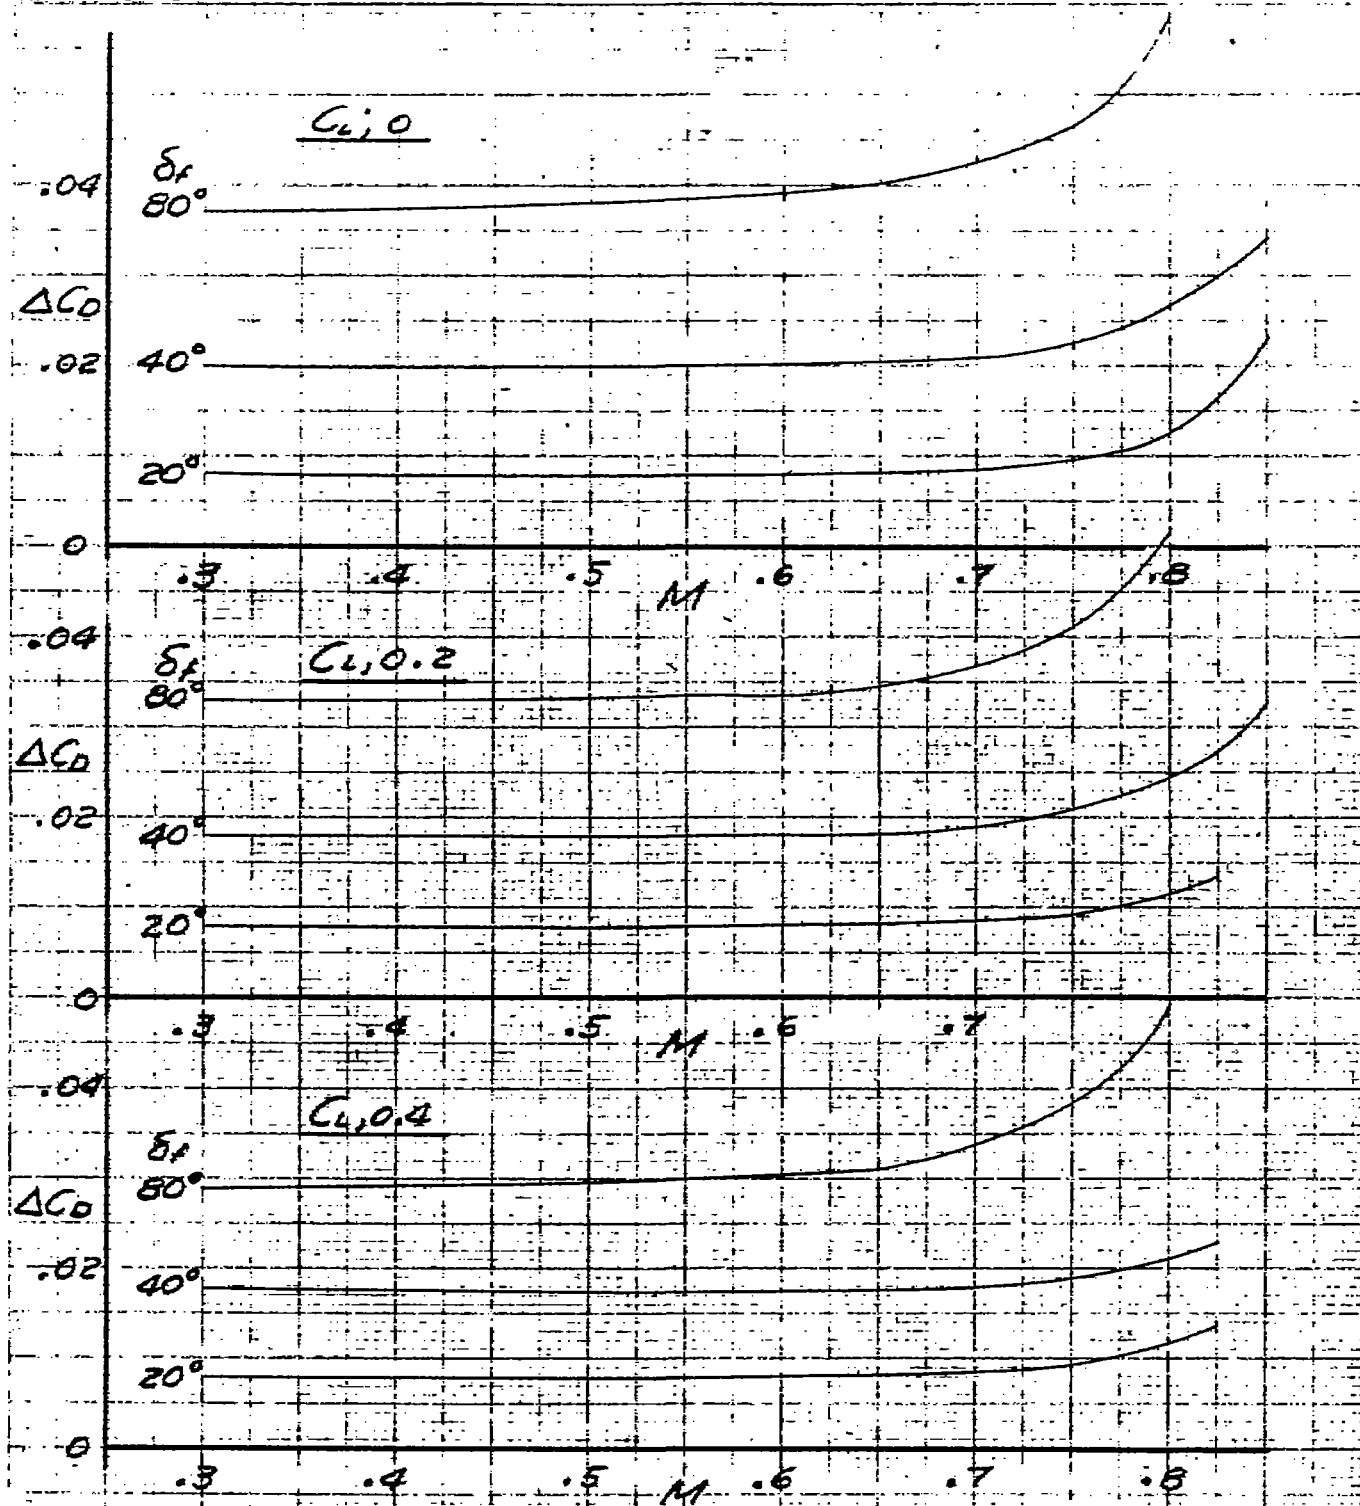 C_L, 0
δ_f
.04
80°
ΔC_D
.02 40°
20°
0
.3 .4 .5 M .6 .7 .8
.04
δ_f C_L, 0.2
80°
ΔC_D
.02
40°
20°
0
.3 .4 .5 M .6 .7
.04
C_L, 0.4
δ_f
80°
ΔC_D
.02 40°
20°
0
.3 .4 .5 M .6 .7 .8